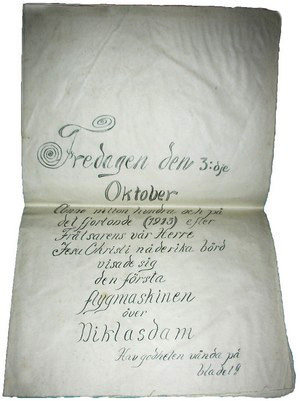 Fredagen den 3:dje
Oktober
Anno nitton hundra och på
det fjortonde (1913) efter
Frälsarens vår Herre
Jesu Christi nåderika börd
visade sig
den första
flygmaskinen
över
Niklasdam
Hav godheten vända på
bladet!